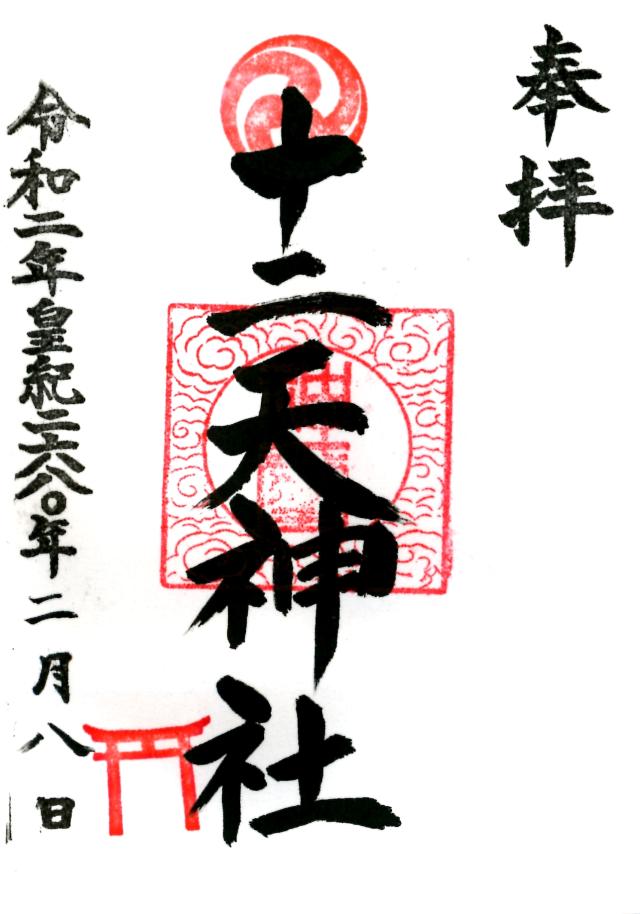 奉拝
十二天神社
令和二年皇紀二六八〇年二月八日